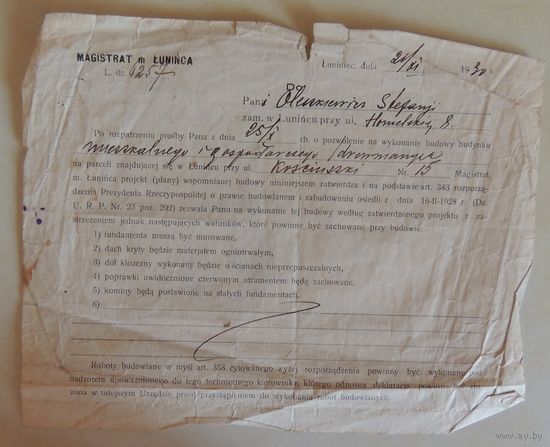 MAGISTRAT m ŁUNIŃCA
L. dz. 6257
Łuniniec, dnia 21/XI 1930.
Do
Pani Oleszkiewicz Stefanji
zam. w Łunińcu przy ul. Homelskiej 8.
Po rozpatrzeniu prośby Pana z dnia 25/X rb. o pozwolenie na wykonanie budowy budynku
mieszkalnego i gospodarczego /drewnianych
na parceli znajdującej się w Łunińcu przy ul. Kościuszki Nr. 15 Magistrat
m. Łunińca projekt (plany) wspomnianej budowy niniejszem zatwierdza i na podstawie art. 343 rozporzą-
dzenia Prezydenta Rzeczypospolitej o prawie budowlanem i zabudowaniu osiedli z dnia 16-II-1928 r. (Dz.
U. R. P. Nr. 23 poz. 202) zezwala Panu na wykonanie tej budowy według zatwierdzonego projektu z za-
strzeżeniem jednak następujących warunków, które powinne być zachowane przy budowie:
1) fundamenta muszą być murowane,
2) dach kryty będzie materjałem ogniotrwałym,
3) dół kloaczny wykonany będzie o ścianach nieprzepuszczalnych,
4) poprawki uwidocznione czerwonym atramentem będą zachowane,
5) kominy będą postawione na stałych fundamentach,
6)
Roboty budowlane w myśl art. 358 cytowanego wyżej rozporządzenia powinny być wykonane pod
nadzorem upoważnionego do tego technicznego kierownika, którego odnośna deklaracja powinna być zło-
żona w tutejszym Urzędzie przed przystąpieniem do wykonania robót budowlanych.
www.ay.by